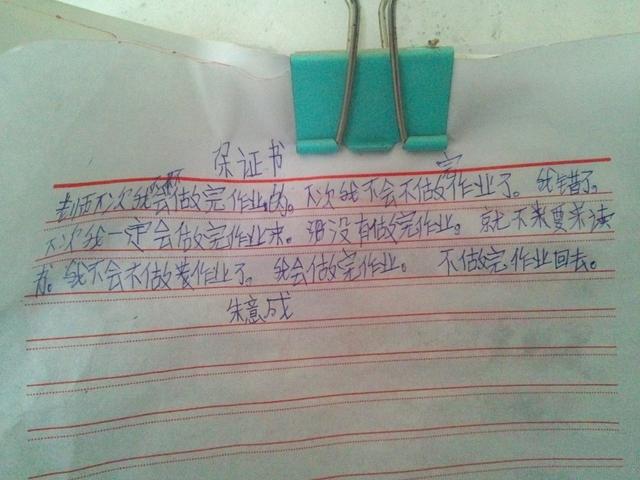 保证书
老师下次我会做完作业的。下次我不会不做完作业了。我错了。
下次我一定会做完作业来。没有做完作业。就不来要来读
书。我不会不做业作业了。我会做完作业。不做完作业回去。
朱意成